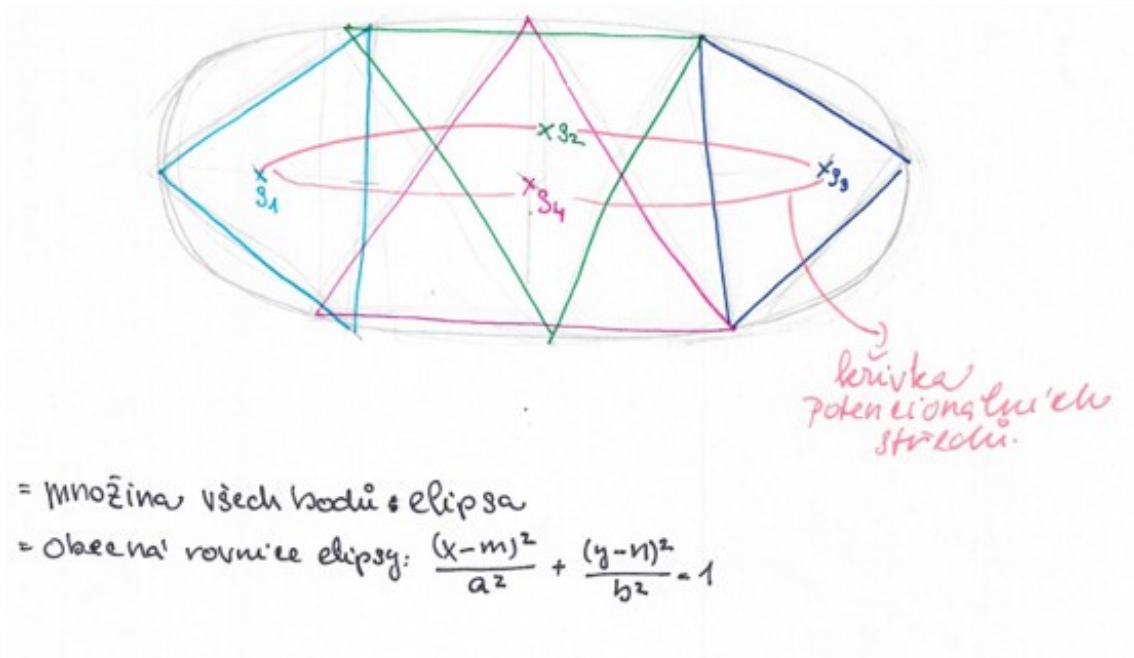 ×S₂
×S₁
×S₄
×S₃
křivka
potencionálních
středů.
= množina všech bodů : elipsa
= Obecná rovnice elipsy: (x-m)²/a² + (y-n)²/b² = 1